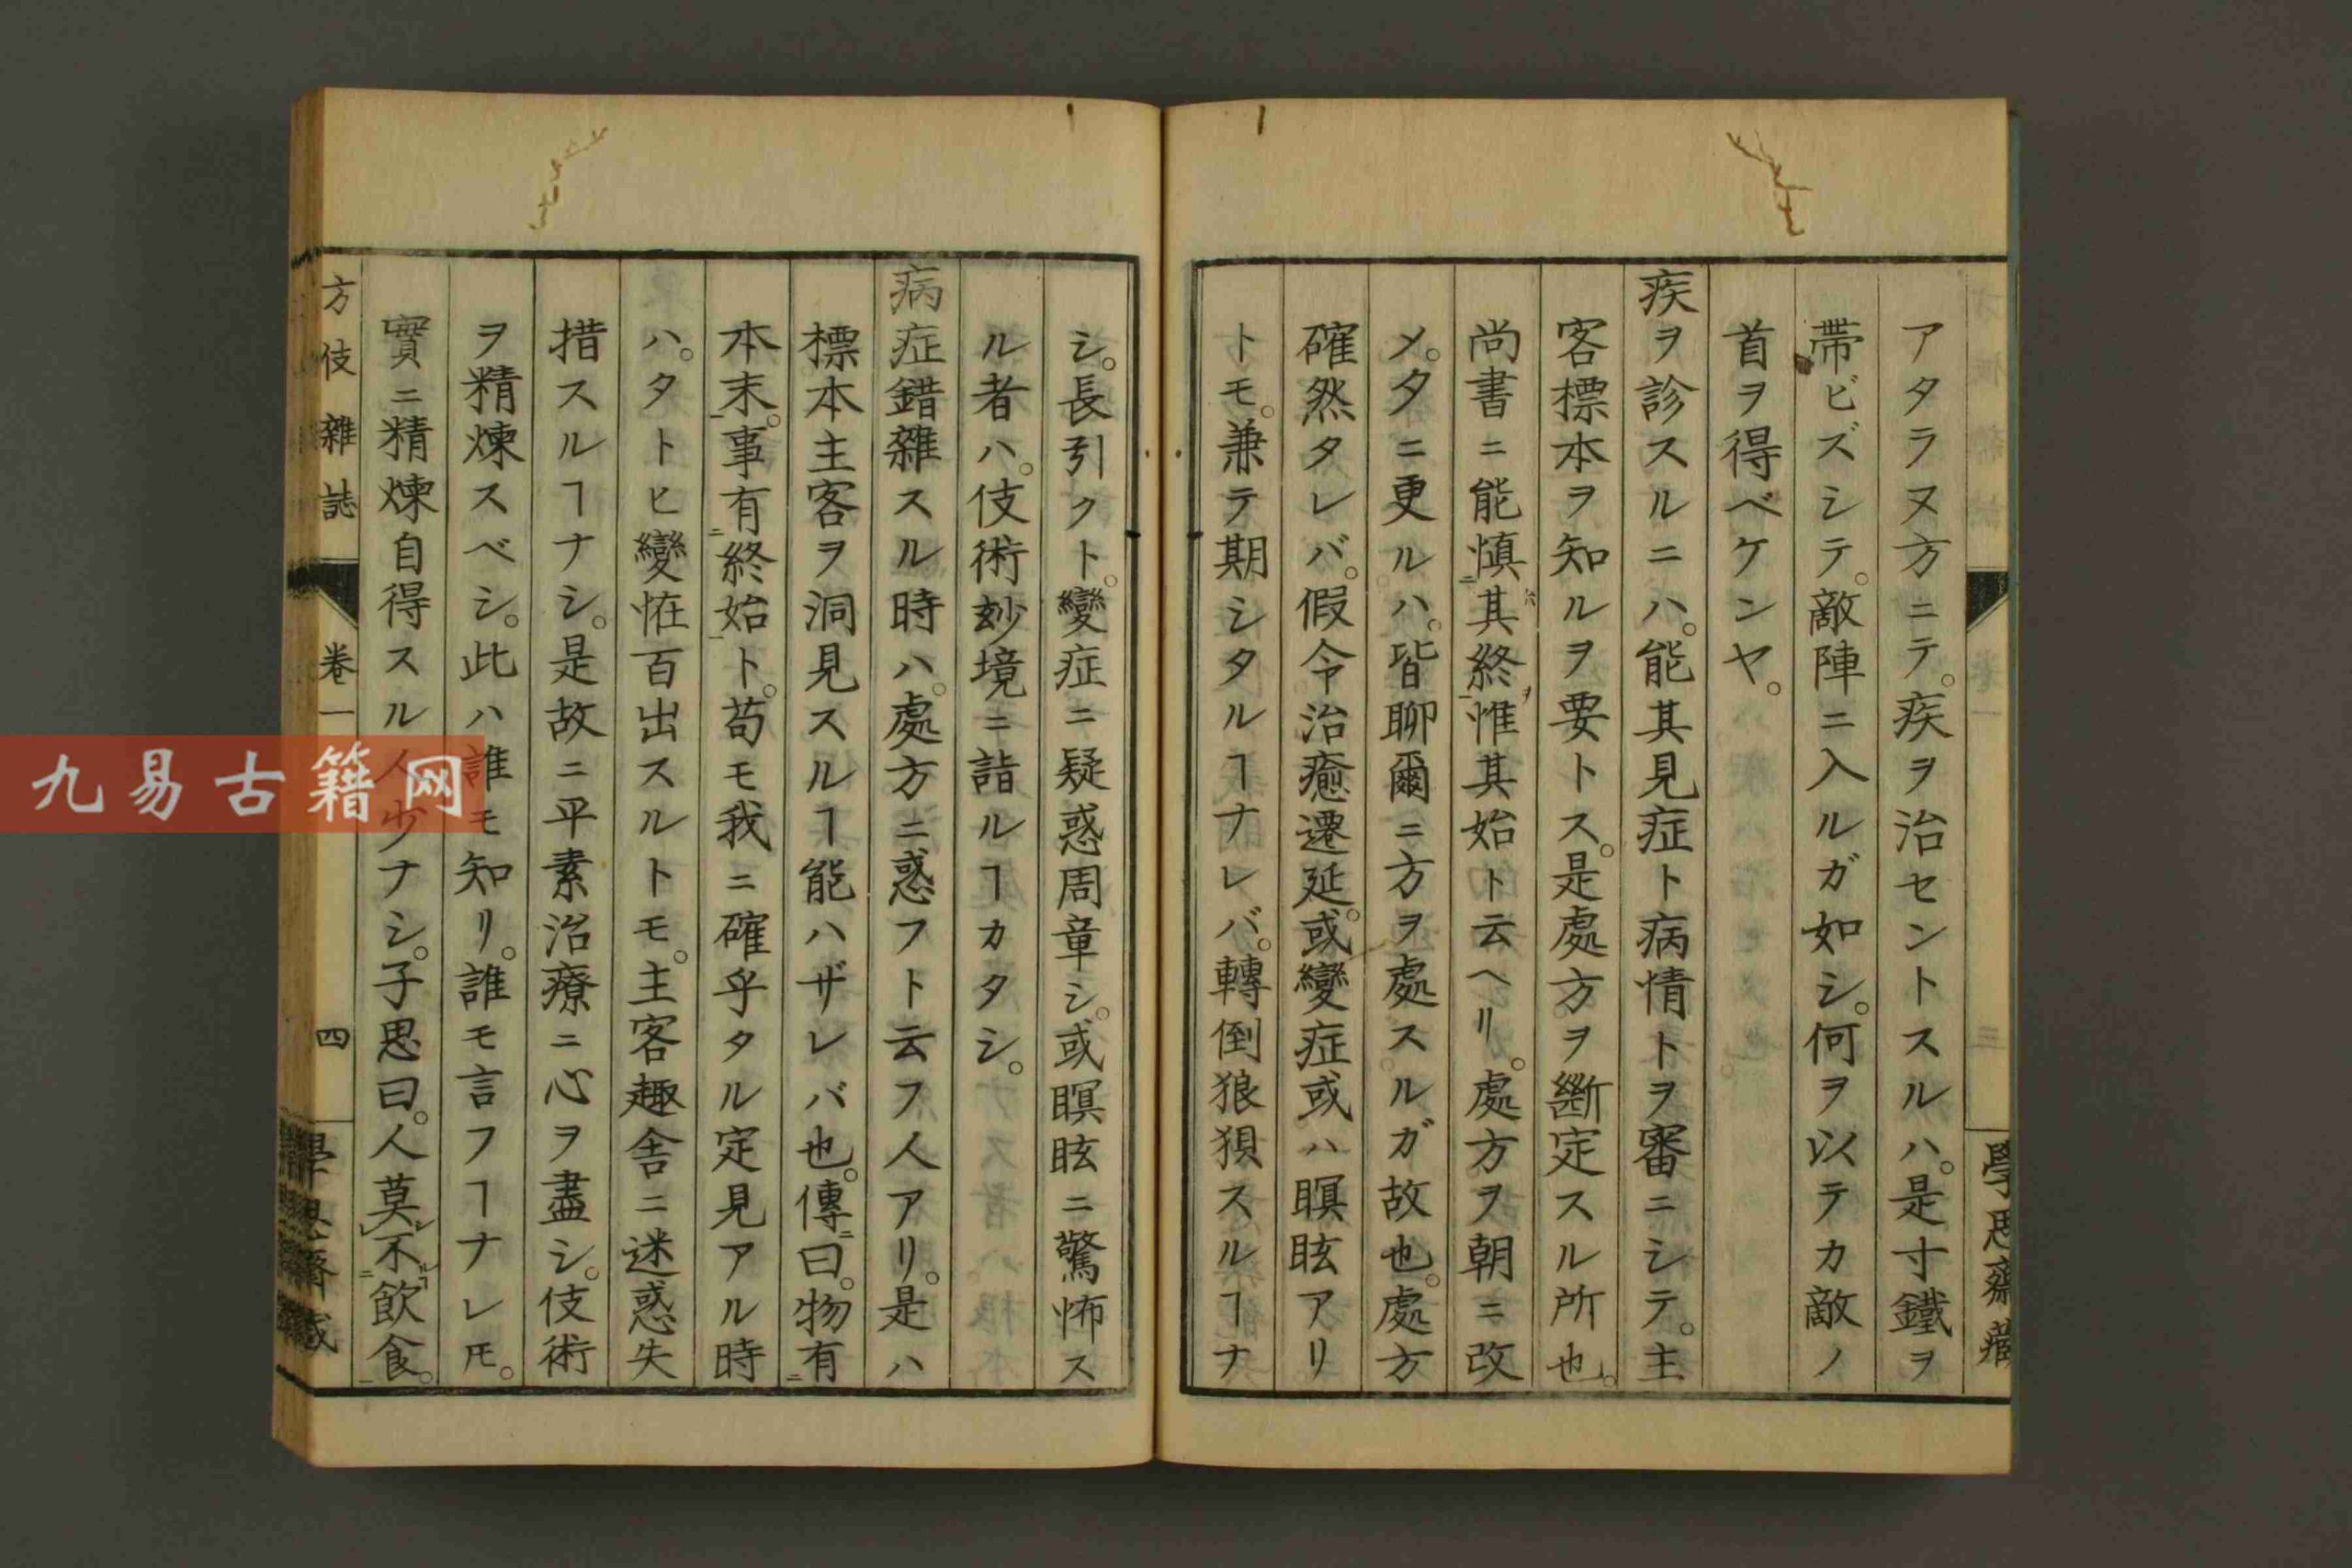 學思齋藏
アタラヌ方ニテ。疾ヲ治セントスルハ。是寸鐵ヲ
帶ビズシテ。敵陣ニ入ルガ如シ。何ヲ以テカ敵ノ
首ヲ得ベケンヤ。
疾ヲ診スルニハ。能其見症ト病情トヲ審ニシテ。主
客標本ヲ知ルヲ要トス。是處方ヲ斷定スル所也。
尚書ニ能愼其終惟其始ト云ヘリ。處方ヲ朝ニ改
メ。タニ更ルハ。皆聊爾ニ方ヲ處スルガ故也。處方
確然タレバ。假令治癒遷延。或變症或ハ瞑眩アリ
トモ。兼テ期シタルヿナレバ。轉倒狼狽スルヿナ
シ。長引クト。變症ニ疑惑周章シ。或瞑眩ニ驚怖ス
ル者ハ。伎術玅境ニ詣ルヿカタシ。
病症錯雜スル時ハ。處方ニ惑フト云フ人アリ。是ハ
標本主客ヲ洞見スルヿ能ハザレバ也。傳曰。物有
本末。事有終始ト。苟モ我ニ確乎タル定見アル時
ハ。タトヒ變恠百出スルトモ。主客趣舍ニ迷惑失
措スルヿナシ。是故ニ平素治療ニ心ヲ盡シ。伎術
ヲ精煉スベシ。此ハ誰モ知リ。誰モ言フヿナレ𪜈。
實ニ精煉自得スル人少ナシ。子思曰。人莫不飮食。
方伎雜誌 卷一 四 學思齋藏
九易古籍网